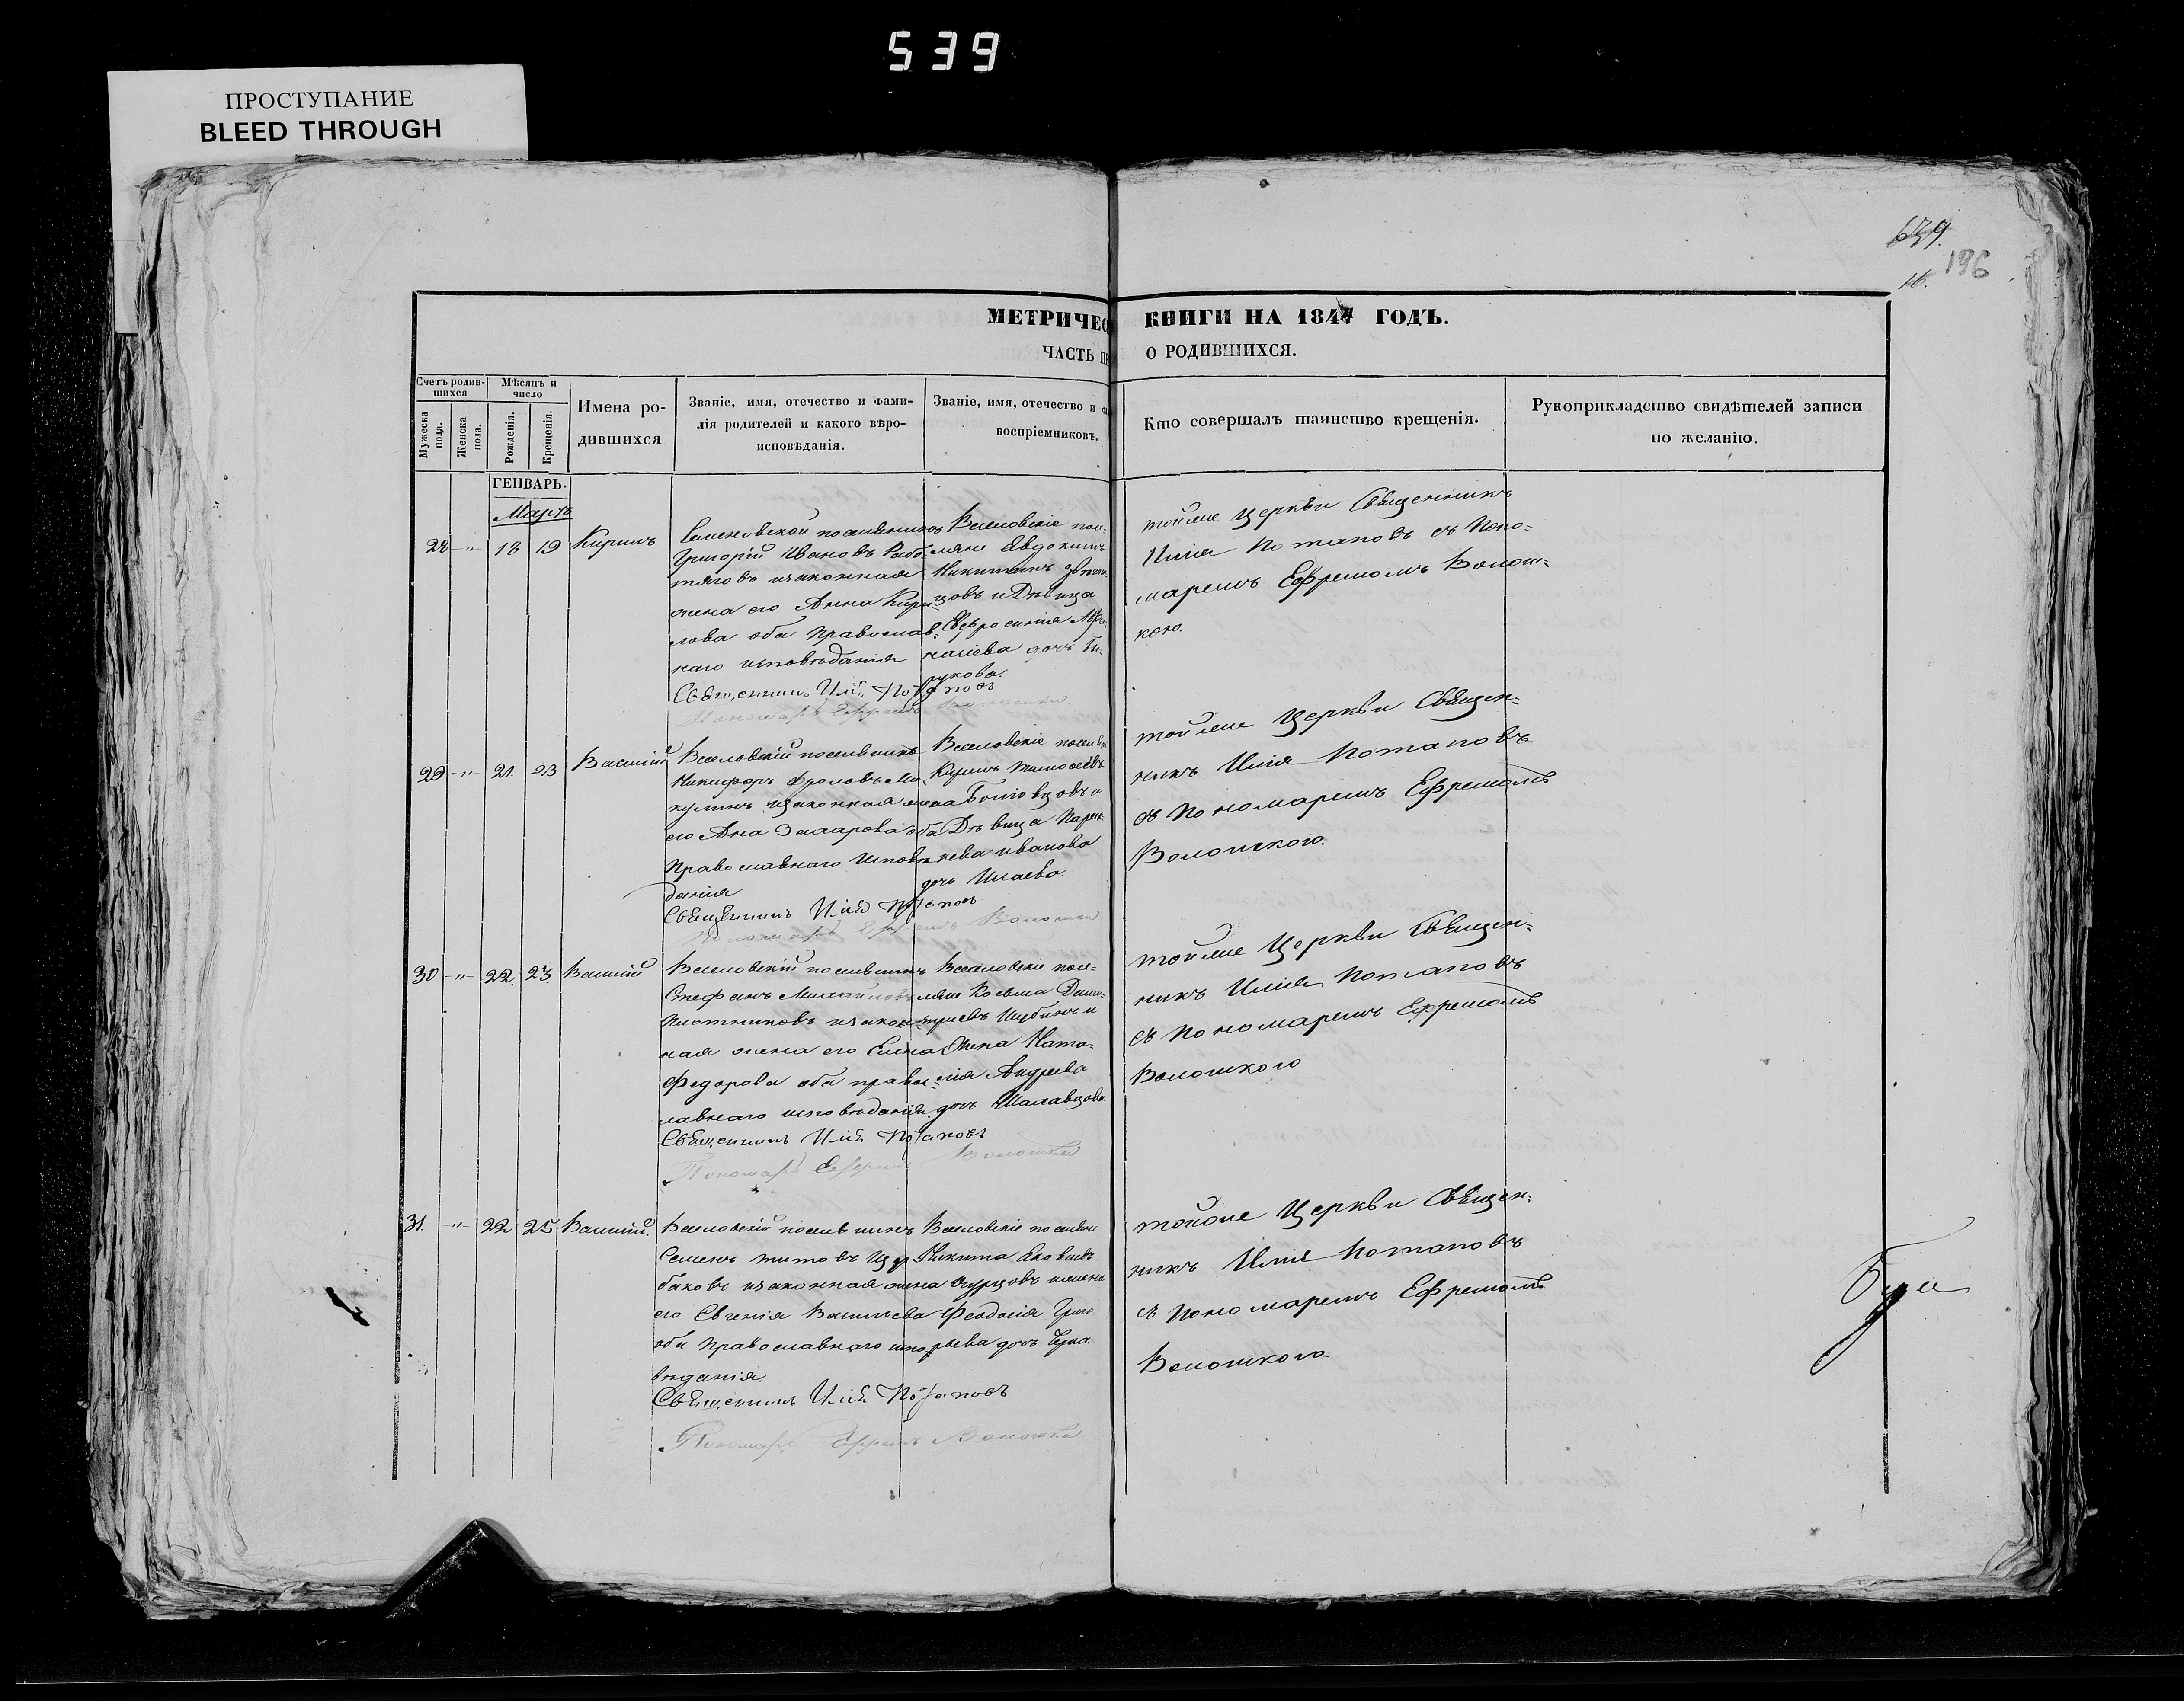 539
ПРОСТУПАНИЕ
BLEED THROUGH
639.
196
16.
МЕТРИЧЕС КНИГИ НА 1847 ГОДЪ.
ЧАСТЬ ПЕ О РОДИВШИХСЯ.
Счетъ родив-
шихся
Мужеска
пола.
Женска
пола.
Мѣсяцъ и
число
Рожденія.
Крещенія.
Имена ро-
дившихся
Званіе, имя, отечество и фами-
лія родителей и какого вѣро-
исповѣданія.
Званіе, имя, отечество и
воспріемниковъ.
Кто совершалъ таинство крещенія.
Рукоприкладство свидѣтелей записи
по желанію.
ГЕНВАРЬ.
Мартъ
28 -"- 18 19 Кирилъ
Григорій Ивановъ
изаконная
жена его Анна Кири-
лова оба Православ-
наго исповѣданія
Священникъ Илія Потаповъ
Пономарь Ефремъ Волошки
Веселовскіе посе-
ляне Евдокимъ
Никитинъ
цовъ и Дѣвица
Евфросинія
дочь
рукова.
тойже церкви Священникъ
Илія Потаповъ съ Поно-
маремъ Ефремомъ Волош-
кою.
29 -"- 21. 23 Василій
Веселовскій поселянинъ
Никифоръ Фроловъ Ми-
кулинъ изаконная жена
его Анна Захарова оба
Православнаго Исповѣ-
данія
Священникъ Илія Потаповъ
Пономарь Ефремъ Волошки
Веселовскіе поселяне
Кирилъ Тимофеевъ
и
Дѣвица Параск-
кева Иванова
дочь Исаева.
тойже Церкви Священ-
никъ Илія Потаповъ
съ Пономаремъ Ефремомъ
Волошкого.
30 -"- 22. 23. Василій
Веселовскій поселянинъ
Стефанъ Михайловъ
Плотниковъ изакон-
ная жена его Елена
Федорова оба правос-
лавнаго исповѣданія.
Священникъ Илія Потаповъ
Пономарь Ефремъ Волошки
Веселовскіе посе-
ляне Косьма Дими-
тріевъ Шубинъ и
Жена Ната-
лія Андреева
дочь Шалавцова.
тойже Церкви Священ-
никъ Илія Потаповъ
съ Пономаремъ Ефремомъ
Волошкого
31. -"- 22 25 Василій.
Веселовскій поселянинъ
Семенъ Титовъ
изаконная жена
его Евгенія Васильева
оба Православнаго испо-
вѣданія.
Священникъ Илія Потаповъ
Пономарь Ефремъ Волошка
Веселовскіе поселяне
Никита Яковлевъ
и жена
Феодосія Григо-
рьева дочь
тойже Церкви Священ-
никъ Илія Потаповъ
съ Пономаремъ Ефремомъ
Волошкого